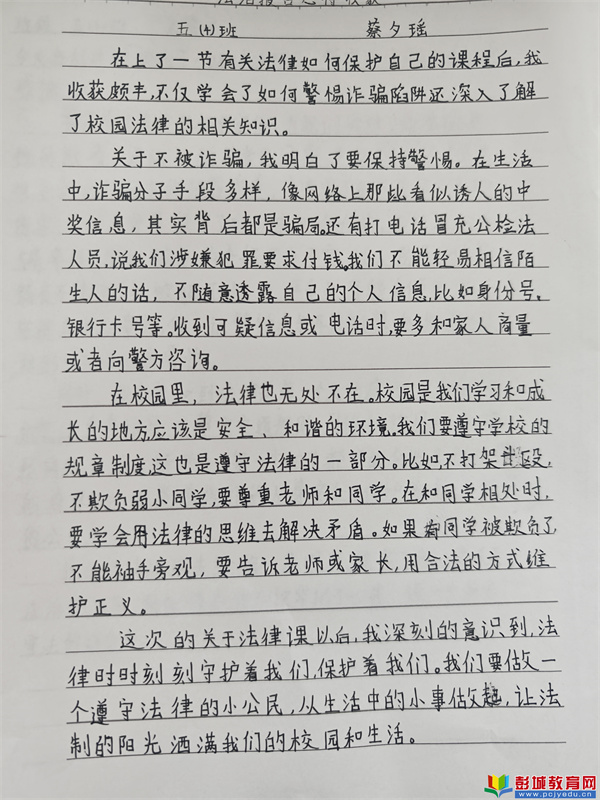 五(4)班 蔡夕瑶
在上了一节有关法律如何保护自己的课程后,我
收获颇丰,不仅学会了如何警惕诈骗陷阱还深入了解
了校园法律的相关知识。
关于不被诈骗,我明白了要保持警惕。在生活
中,诈骗分子手段多样,像网络上那些看似诱人的中
奖信息,其实背后都是骗局。还有打电话冒充公检法
人员,说我们涉嫌犯罪,要求付钱。我们不能轻易相信陌
生人的话,不随意透露自己的个人信息,比如身份号,
银行卡号等。收到可疑信息或电话时,要多和家人商量
或者向警方咨询。
在校园里,法律也无处不在。校园是我们学习和成
长的地方,应该是安全、和谐的环境。我们要遵守学校的
规章制度,这也是遵守法律的一部分。比如,不打架
不欺负弱小同学,要尊重老师和同学。在和同学相处时,
要学会用法律的思维去解决矛盾。如果同学被欺负了,
不能袖手旁观,要告诉老师或家长,用合法的方式维
护正义。
这次的关于法律课以后,我深刻的意识到,法
律时时刻刻守护着我们,保护着我们。我们要做一
个遵守法律的小公民,从生活中的小事做起,让法
制的阳光洒满我们的校园和生活。
彭城教育网
www.pcjyedu.cn